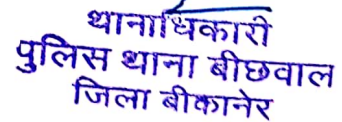 थानाधिकारी
पुलिस थाना बीछवाल
जिला बीकानेर